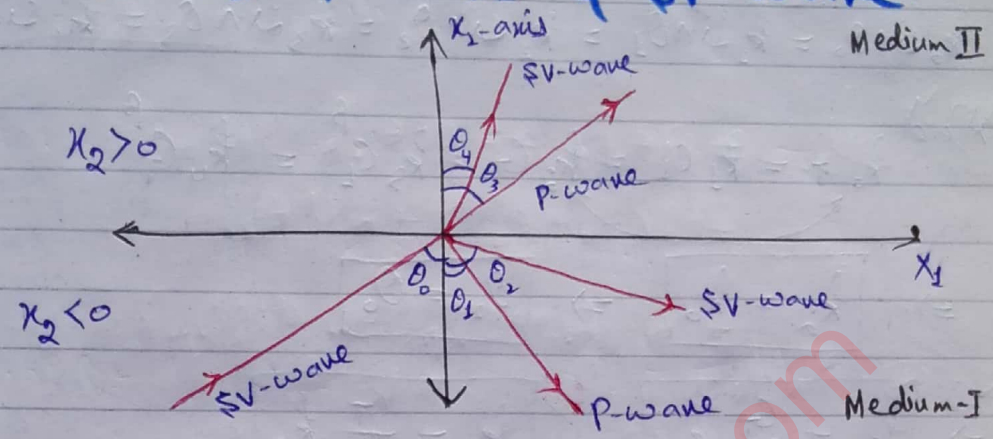 x₂-axis
Medium II
SV-wave
x₂>0
θ₄
θ₃
P-wave
X₁
θ₀
θ₁
θ₂
SV-wave
x₂<0
SV-wave
P-wave
Medium-I
om